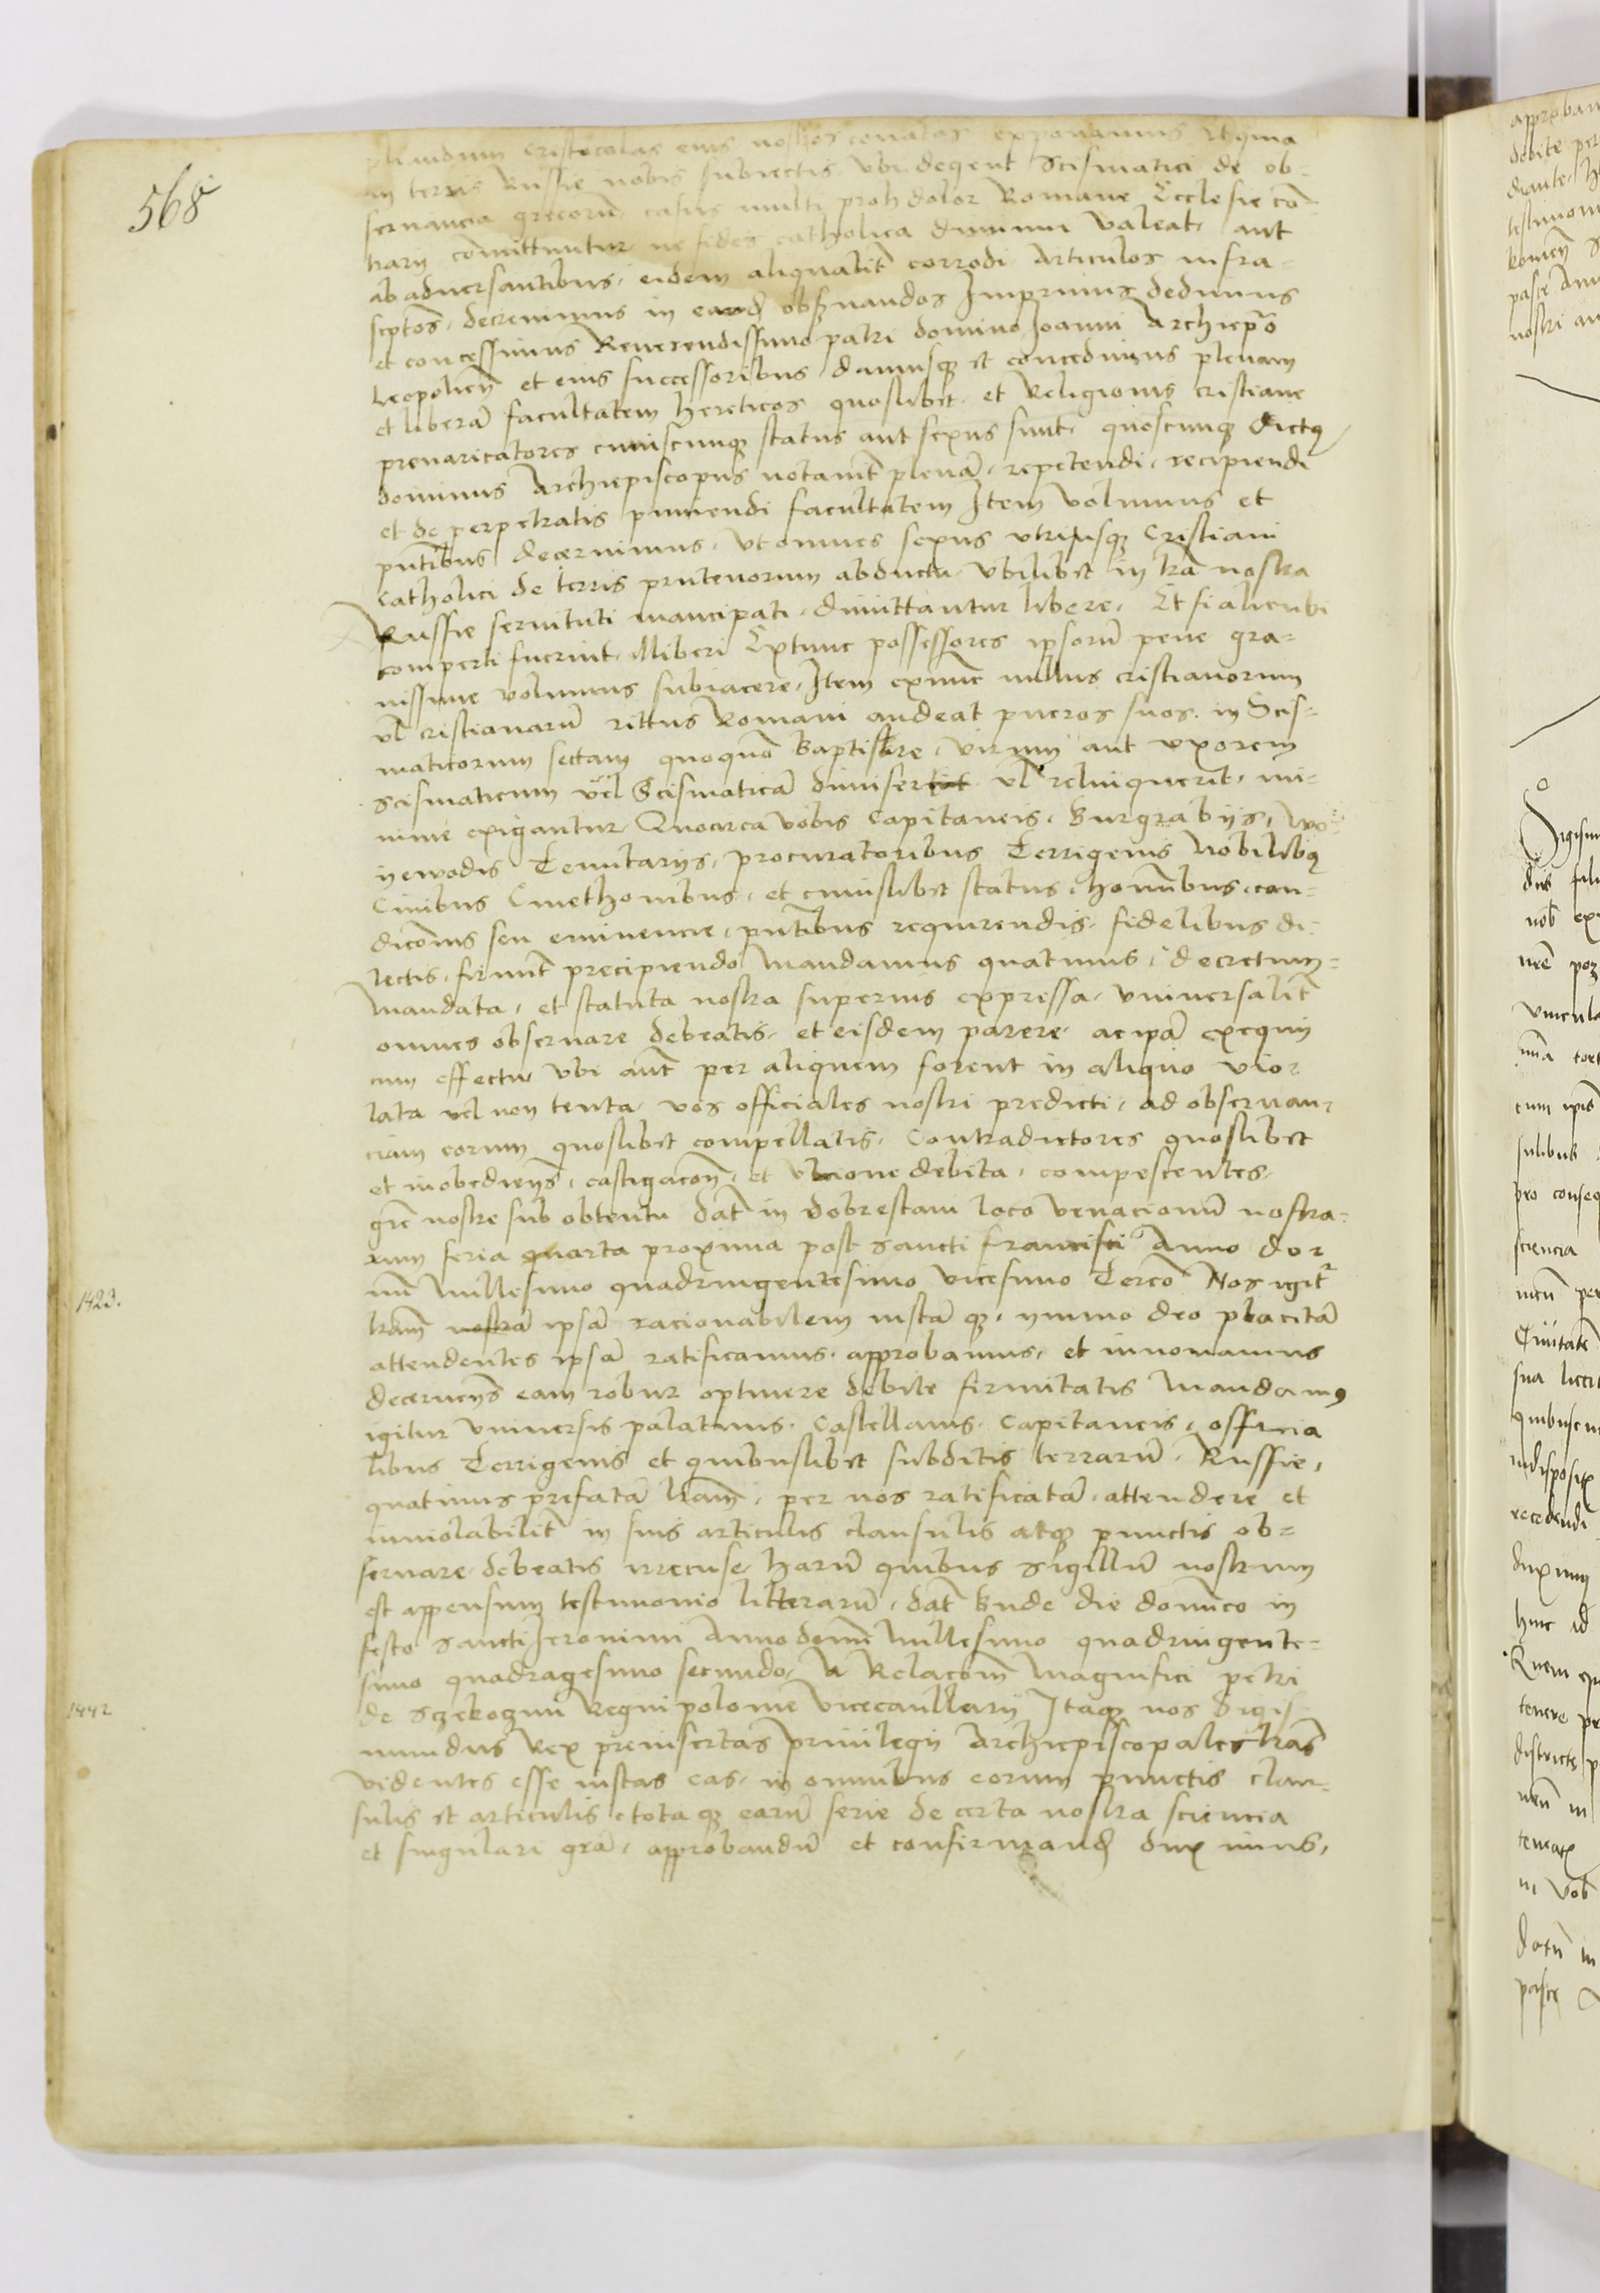 568
cristocolas eius nostros conatos exponamus
in terris Russie nobis subiectis vbi degent Scismatici de ob-
seruancia grecorũ casus multi proh dolor Romane Ecclesie cõ-
trarij cõmittuntur ne fides catholica diminui valeat, aut
ab aduersantibus, eidem aliqualit̃ corrodi Articulos infra-
scptos, decreuimus in obseruandos Imprimis dedimus
et concessimus Reuerendissimo patri domino Joanni Archiep̃o
leopolien̄ et eius successoribus damusq3 et concedimus plenam
et liberã facultatem hereticos quoslibet, et Religionis cristiane
preuaricatores cuiuscunq3 status aut sexus sunt, quoscunq3 dictus
dominus Archiepiscopus notauit plenã, repetendi, recipiendi
et de perpetratis puniendi facultatem Item volumus et
pñtibus decernimus, vt omnes sexus vtriusq3 Cristiani
catholici de terris prutenorum abducti, vbilibet in tr̃a nostra
Russie seruituti mancipati, dimittantur libere, Et si alicubi
comperti fuerint, illiberi Extunc possessores ipsorũ pene gra-
uissime volumus subiacere, Item exnunc nullus cristianorum
vl cristianarũ rittus Romani audeat pueros suos in Scis-
maticorum sectam quoquõ baptisare, virum aut vxorem
Scismaticum vel Scismaticã vl relinquerit, mi-
nime exigantur Quocirca vobis Capitaneis, Burgrabijs, Wo-
yewodis Tenutarijs, procuratoribus Terrigenis Nobilibus
Ciuibus Cmethonibus, et cuiuslibet status, hominibus, con-
dicõnis seu eminencie, pñtibus requirendis, fidelibus di-
lectis, firmit̃ precipiendo mandamus quatinus, decretum-
mandata, et statuta nostra superius expressa, vniuersalit̃
omnes obseruare debeatis, et eisdem parere, ac ip̃ã exequi
cum effectu vbi aũt per aliquem forent in aliquo vio-
lata vel non tenta, vos officiales nostri predicti, ad obseruan-
ciam eorum quoslibet compellatis, Contradictores quoslibet
et inobediens̄, castigacoñ, et vlcione debita, compescentes,
grẽ nostre sub obtentu Dat̃ in dobrestani loco venacionũ nostra-
rum feria quarta proxima post sancti francisci Anno do-
mĩ Millesimo quadringentesimo vicesimo Tercõ Nos igit̃
1423.
tram̃ nostrã ipsã racionabilem iustã q3, ymmo deo placitã
attendentes ipsã ratificamus, approbamus, et innouamus
decernen̄s eam robur optinere debite firmitatis Mandamus
igitur vniuersis palatinis, Castellanis, Capitaneis, officia
libus Terrigenis et quibuslibet subditis terrarũ, Russie,
quatinus prefatã tram̃, per nos ratificatã, attendere et
inuiolabilit̃ in suis articulis clausulis atq3 punctis ob-
seruare debeatis irrecuse, harũ quibus sigillũ nostrum
est appensum testimonio litterarũ, Dat̃ Bude die dominico in
festo Sancti Jeronimi Anno domĩ Millesimo quadringente-
simo quadragesimo secundo, Relacõem Magnifici petri
de Sczekoczini Regni polonie vicecancellarij Itaq3 nos Sigis-
1442
mundus Rex preinsertas priuilegij Archiepiscopales tras̃
videntes esse iustas eas, in omnibus eorum punctis clau-
sulis et articulis, tota q3 earũ serie de certa nostra sciencia
et singulari gr̃a, approbandũ et confirmand̃ duximus,